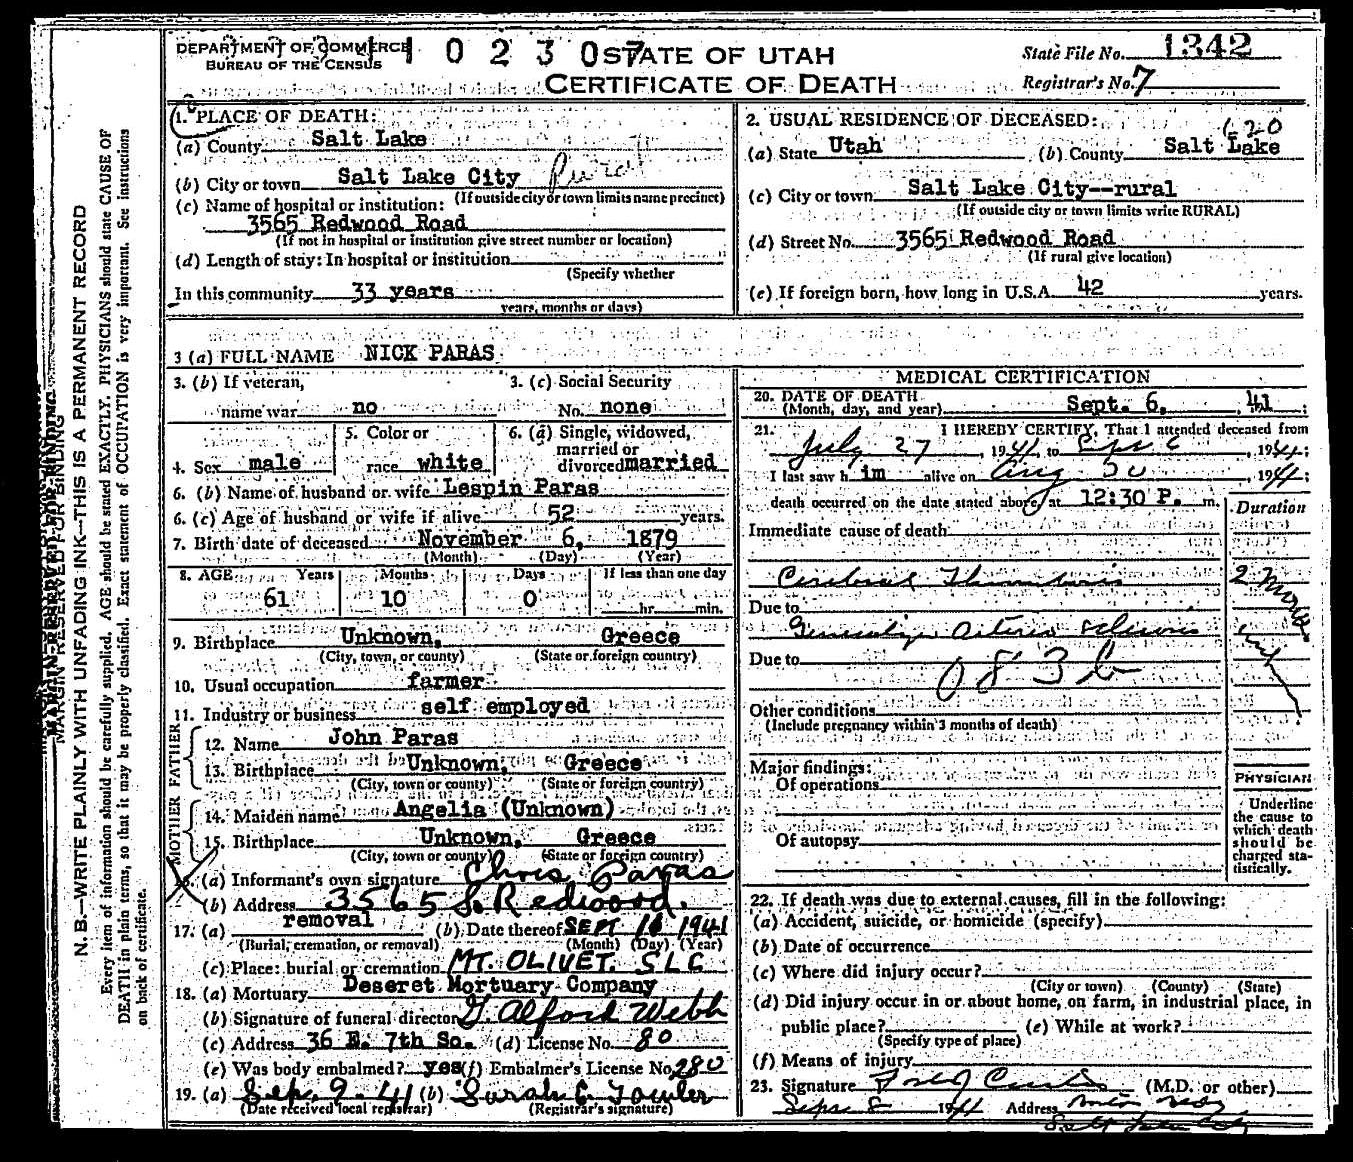 DEPARTMENT OF COMMERCE
BUREAU OF THE CENSUS
1 0 2 3 0 7
STATE OF UTAH
CERTIFICATE OF DEATH
State File No. 1342
Registrar's No. 7
1. PLACE OF DEATH:
(a) County Salt Lake
(b) City or town Salt Lake City Rural
(If outside city or town limits name precinct)
(c) Name of hospital or institution:
3565 Redwood Road
(If not in hospital or institution give street number or location)
(d) Length of stay: In hospital or institution
(Specify whether
In this community 33 years
years, months or days)
2. USUAL RESIDENCE OF DECEASED:
(a) State Utah (b) County Salt Lake
(c) City or town Salt Lake City--rural
(If outside city or town limits write RURAL)
(d) Street No. 3565 Redwood Road
(If rural give location)
(e) If foreign born, how long in U.S.A. 42 years.
3 (a) FULL NAME NICK PARAS
3. (b) If veteran,
name war no
3. (c) Social Security
No. none
4. Sex male
5. Color or
race white
6. (a) Single, widowed,
married or
divorced married
6. (b) Name of husband or wife Lespin Paras
6. (c) Age of husband or wife if alive 52 years.
7. Birth date of deceased November 6, 1879
(Month) (Day) (Year)
8. AGE Years Months Days If less than one day
61 10 0 hr. min.
9. Birthplace Unknown, Greece
(City, town, or county) (State or foreign country)
10. Usual occupation farmer
11. Industry or business self employed
FATHER
12. Name John Paras
13. Birthplace Unknown, Greece
(City, town, or county) (State or foreign country)
MOTHER
14. Maiden name Angelia (Unknown)
15. Birthplace Unknown, Greece
(City, town or county) (State or foreign country)
16. (a) Informant's own signature Chris Paras
(b) Address 3565 S. Redwood.
17. (a) removal (b) Date thereof SEPT 10 1941
(Burial, cremation, or removal) (Month) (Day) (Year)
(c) Place: burial or cremation MT. OLIVET. SLC
18. (a) Mortuary Deseret Mortuary Company
(b) Signature of funeral director G Alford Webb
(c) Address 36 E. 7th So. (d) License No. 80
(e) Was body embalmed? yes (f) Embalmer's License No. 280
19. (a) Sep. 9-41 (b) Sarah E Fowler
(Date received local registrar) (Registrar's signature)
MEDICAL CERTIFICATION
20. DATE OF DEATH
(Month, day, and year) Sept. 6, 41;
21. I HEREBY CERTIFY, That I attended deceased from
July 27, 1941, to Sept 6, 1941;
I last saw h im alive on Aug 30, 1941;
death occurred on the date stated above, at 12:30 P. m.
Duration
Immediate cause of death
Cerebral Thrombosis 2
Due to
arterio sclerosis
Due to
083b
Other conditions
(Include pregnancy within 3 months of death)
Major findings:
Of operations
Of autopsy
PHYSICIAN
Underline
the cause to
which death
should be
charged sta-
tistically.
22. If death was due to external causes, fill in the following:
(a) Accident, suicide, or homicide (specify)
(b) Date of occurrence
(c) Where did injury occur?
(City or town) (County) (State)
(d) Did injury occur in or about home, on farm, in industrial place, in
public place? (e) While at work?
(Specify type of place)
(f) Means of injury
23. Signature (M.D. or other)
Sept 8 1941 Address
Salt Lake City
MARGIN RESERVED FOR BINDING
N. B.—WRITE PLAINLY WITH UNFADING INK—THIS IS A PERMANENT RECORD
Every item of information should be carefully supplied. AGE should be stated EXACTLY. PHYSICIANS should state CAUSE OF
DEATH in plain terms, so that it may be properly classified. Exact statement of OCCUPATION is very important. See instructions
on back of certificate.